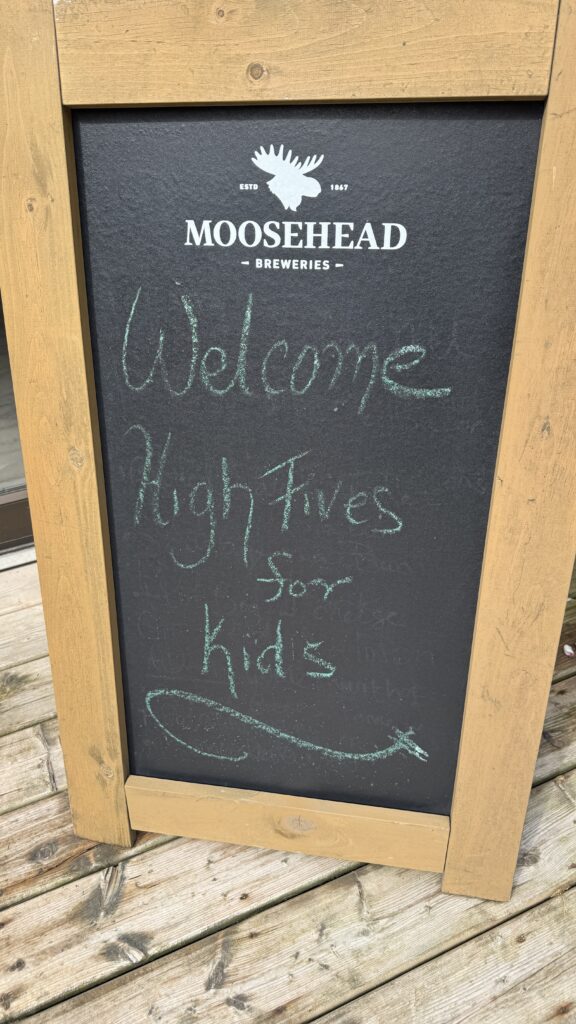 ESTD 1867
MOOSEHEAD
- BREWERIES -
Welcome
High Fives
for
Kids